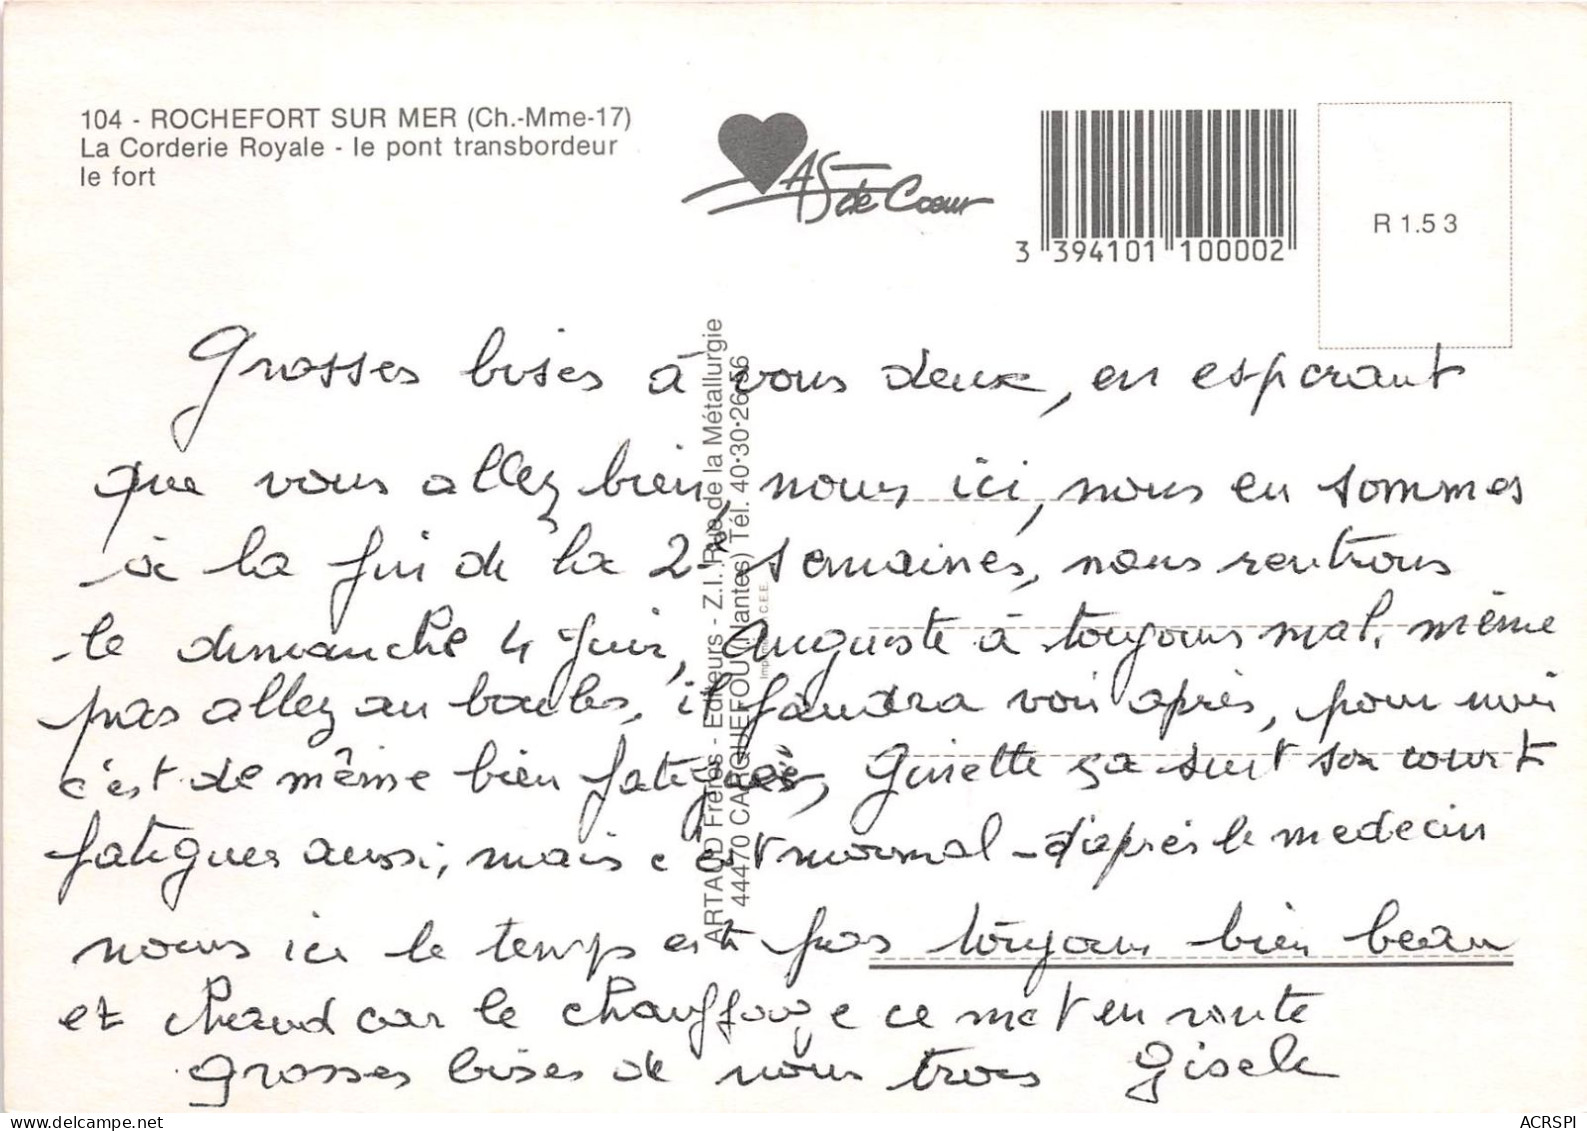 104 - ROCHEFORT SUR MER (Ch.-Mme-17)
La Corderie Royale - le pont transbordeur
le fort
AS de Cœur
3 394101 100002
R 1.53
ARTAUD Frères - Editeurs - Z.I. Rue de la Métallurgie
44470 CARQUEFOU (Nantes) Tél. 40·30·26·56
Grosses bises à vous deux, en esperant
que vous allez bien, nous ici, nous en sommes
à la fin de la 2e semaines, nous rentrons
le dimanche 4 juin, Auguste à toujours mal, même
pas allez au boules, il faudra voir après, pour moi
c'est de même bien fatiguée, Ginette ça suit son court
fatigues aussi, mais c'est normal - d'après le medecin
nous ici le temps est pas toujours bien beau
et chaud car le chauffage ce met en route
grosses bises de nous trois Gisele
ACRSPI
www.delcampe.net